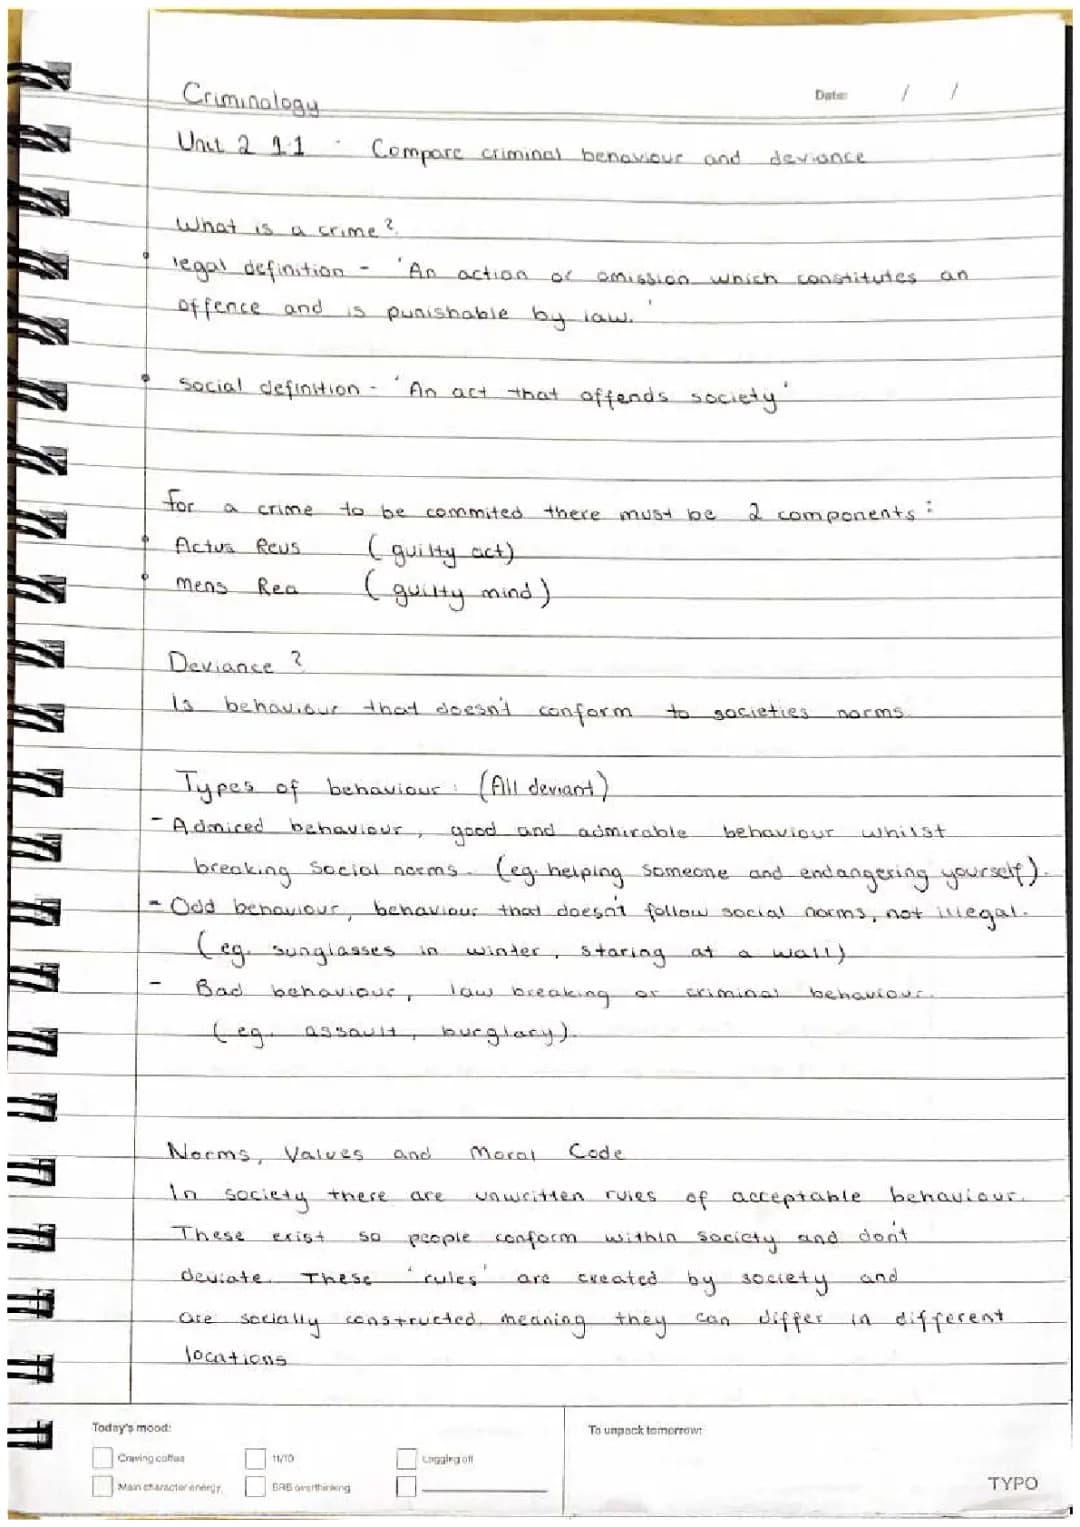 Criminology
Date: / /
Unit 2 1.1 - Compare criminal behaviour and deviance
What is a crime?
legal definition - 'An action or omission which constitutes an
offence and is punishable by law.'
Social definition - 'An act that offends society'
For a crime to be commited there must be 2 components:
Actus Reus (guilty act)
Mens Rea (guilty mind)
Deviance?
Is behaviour that doesn't conform to societies norms.
Types of behaviour: (All deviant)
- Admired behaviour, good and admirable behaviour whilst
breaking social norms. (eg. helping someone and endangering yourself).
- Odd behaviour, behaviour that doesn't follow social norms, not illegal.
(eg. sunglasses in winter, staring at a wall)
- Bad behaviour, law breaking or criminal behaviour.
(eg. assault, burglary).
Norms, Values and Moral Code
In society there are unwritten rules of acceptable behaviour.
These exist so people conform within society and don't
deviate. These 'rules' are created by society and
are socially constructed, meaning they can differ in different
locations
Today's mood:
To unpack tomorrow:
Craving coffee
11/10
Logging off
Main character energy
BRB overthinking
TYPO
1